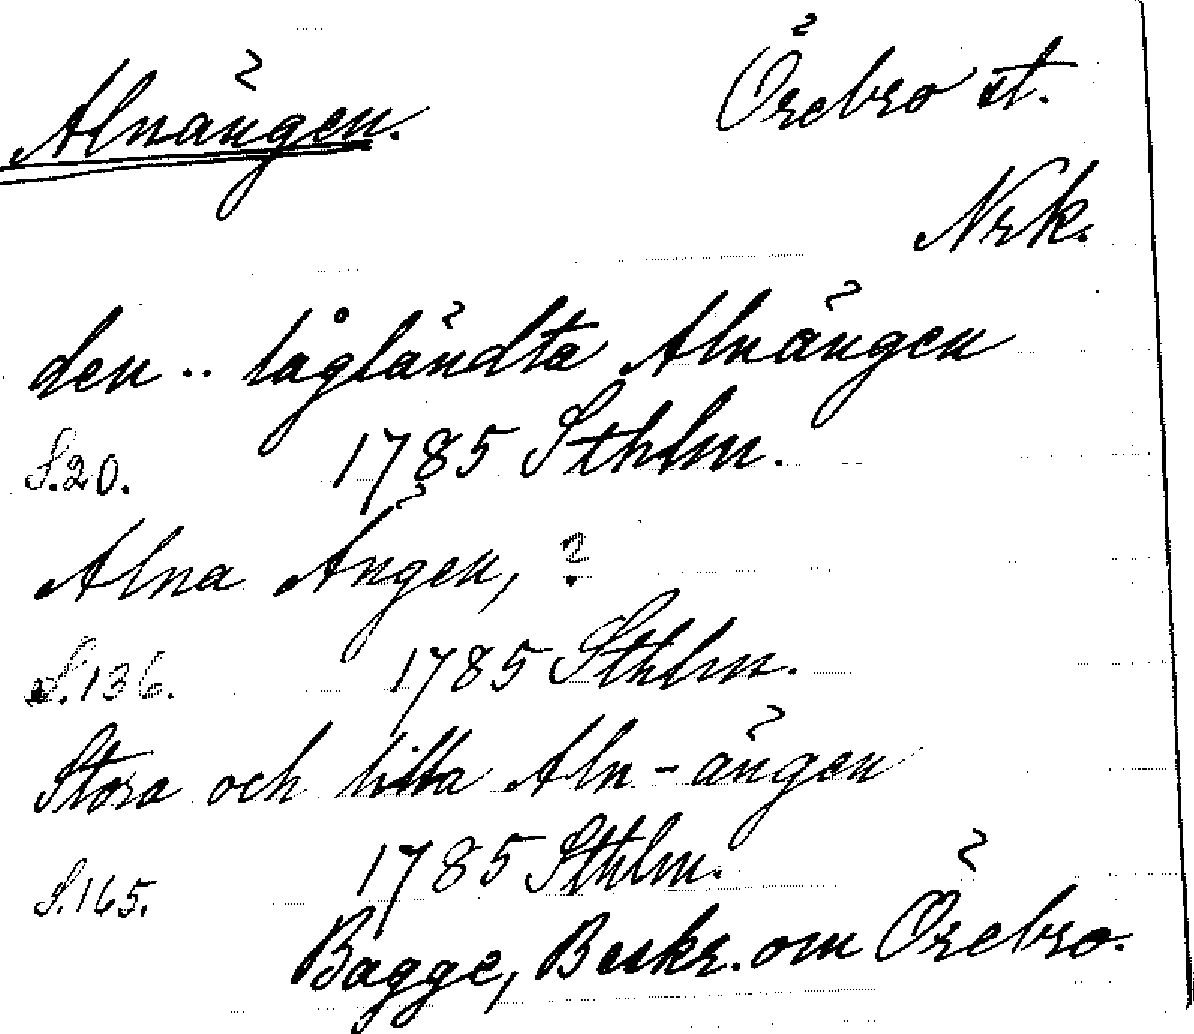 Alnängen. Örebro st.
Nrk.
den .. lågländta Alnängen
S.20. 1785 Sthlm.
Alna Ängen, ?
S.136. 1785 Sthlm.
Stora och lilla Aln-ängen
S.165. 1785 Sthlm.
Bagge, Beskr. om Örebro.